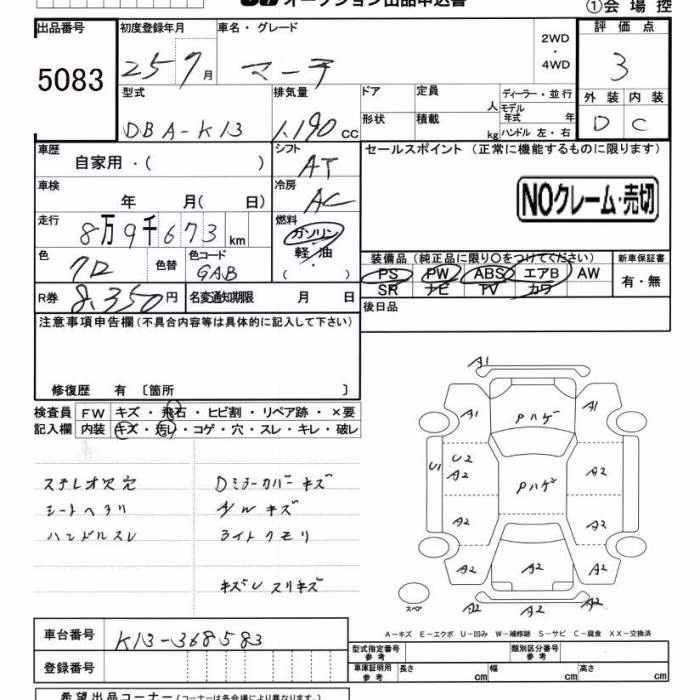 オークション出品申込書
①会場控
出品番号
5083
初度登録年月
25 7月
車名・グレード
マーチ
2WD
・
4WD
評価点
3
型式
DBA-K13
排気量
1,190 cc
ドア
定員
人
ディーラー・並行
モデル年式 年
形状
積載
kg
ハンドル 左・右
外装 内装
D C
車歴
自家用・( )
シフト
AT
セールスポイント (正常に機能するものに限ります)
NOクレーム・売切
車検
年 月( 日)
冷房
AC
走行
8万9千673 km
燃料
ガソリン
軽・油
・( )
色
クロ
色替
色コード
GAB
装備品 (純正品に限り○をつけてください)
PS PW ABS エアB AW
SR ナビ TV カワ
新車保証書
有・無
R券 8,350円
名変通知期限 月 日
後日品
注意事項申告欄(不具合内容等は具体的に記入して下さい)
修復歴 有 〔箇所 〕
検査員記入欄
FW キズ・飛石・ヒビ割・リペア跡・×要
内装 キズ・汚レ・コゲ・穴・スレ・キレ・破レ
ステレオ欠穴
シートヘタリ
ハンドルスレ
Dミラーカバーキズ
A/Wキズ
ライトクモリ
スリキズ
A1
A1 Pハゲ A1
U1 U2 A2 Pハゲ A2
A2 A2
A2 A2 A2
A2
スペ
A-キズ E-エクボ U-凹み W-補修跡 S-サビ C-腐食 XX-交換済
車台番号
K13-368583
登録番号
型式指定番号
参考
類別区分番号
参考
車庫証明用
参考
長さ cm
幅 cm
高さ cm
希望出品コーナー(コーナーは各会場により異なります。)